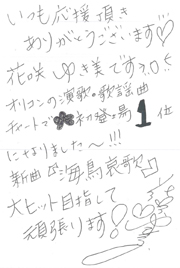 いつも応援頂き
ありがとうございます♡
花咲ゆき美です!!
オリコンの演歌・歌謡曲
チャートで初登場1位
になりました~!!!
新曲『海鳥哀歌』
大ヒット目指して
頑張ります!